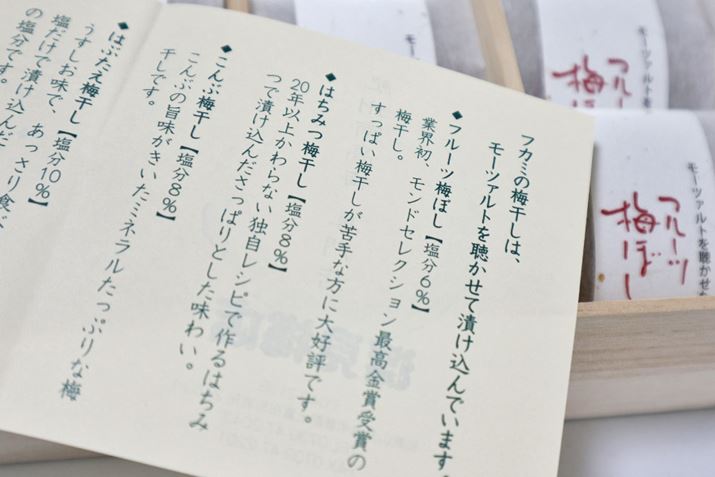 フカミの梅干しは、
モーツァルトを聴かせて漬け込んでいます
◆フルーツ梅ぼし【塩分6%】
業界初、モンドセレクション最高金賞受賞の
梅干し。
すっぱい梅干しが苦手な方に大好評です。
◆はちみつ梅干し【塩分8%】
20年以上かわらない独自レシピで作るはちみ
つで漬け込んださっぱりとした味わい。
◆こんぶ梅干し【塩分8%】
こんぶの旨味がきいたミネラルたっぷりな梅
干しです。
◆はぶたえ梅干し【塩分10%】
うすしお味で、あっさり食べ
塩だけで漬け込んだ
の塩分です。
モーツァルトを
フルーツ
梅ぼ
モーツァルトを聴かせ
フルーツ
梅ぼし